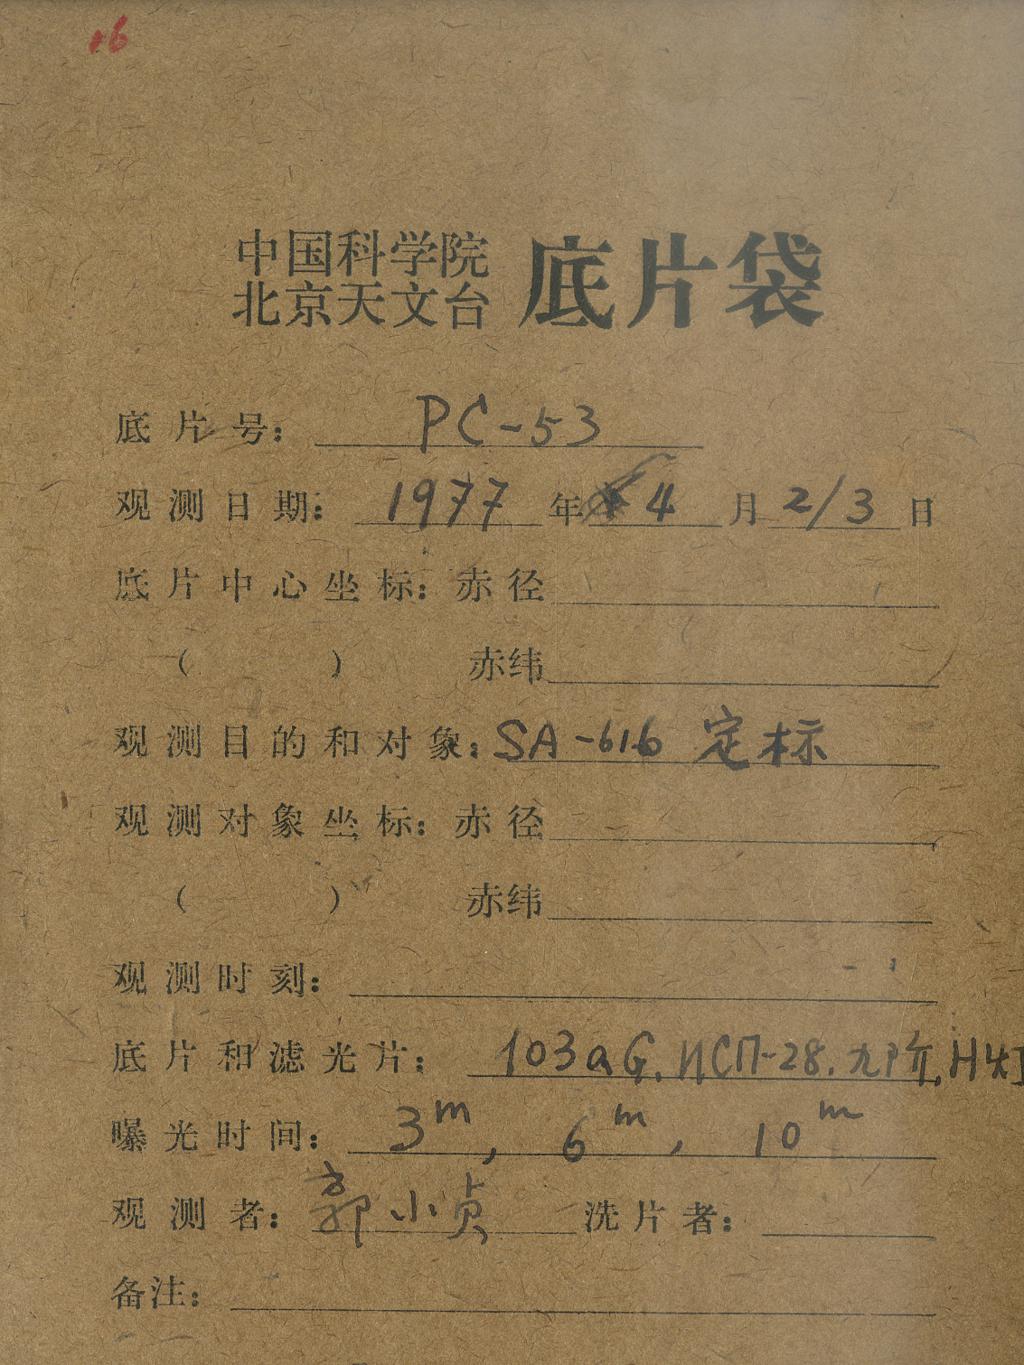 16
中国科学院
北京天文台 底片袋
底片号: PC-53
观测日期: 1977 年 4 月 2/3 日
底片中心坐标: 赤径
( ) 赤纬
观测目的和对象: SA-616 定标
观测对象坐标: 赤径
( ) 赤纬
观测时刻:
底片和滤光片: 103aG. ИСП-28. 九阶. H灯
曝光时间: 3m, 6m, 10m
观测者: 郭小贞 洗片者:
备注: